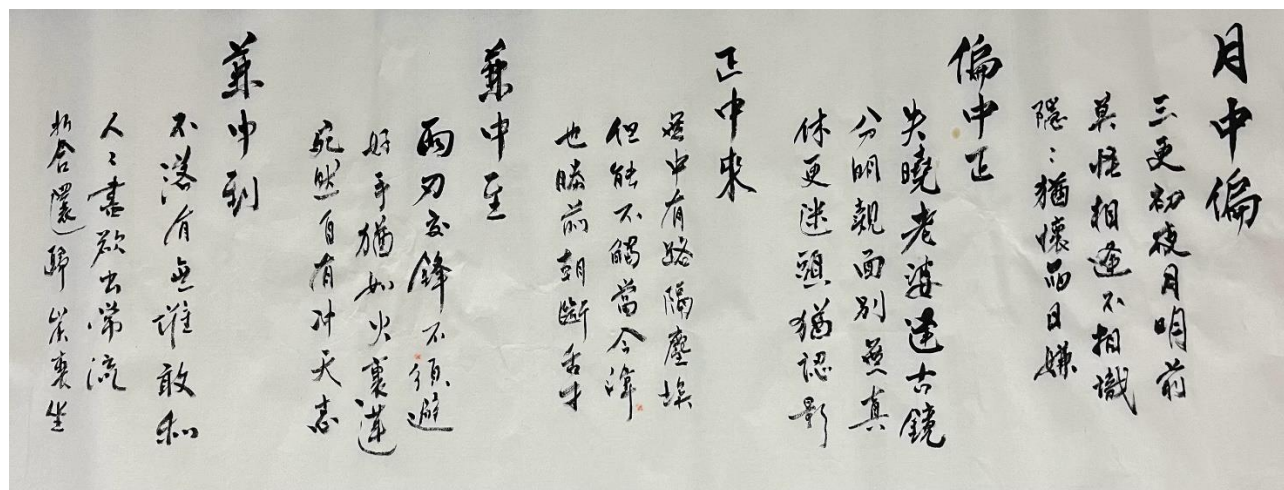 月中偏
三更初夜月明前
莫怪相逢不相識
隱〻猶懷舊日嫌
偏中正
失曉老婆逢古鏡
分明覿面別無真
休更迷頭猶認影
正中來
無中有路隔塵埃
但能不觸當今諱
也勝前朝斷舌才
兼中至
兩刃交鋒不須避
好手猶如火裏蓮
宛然自有沖天志
兼中到
不落有無誰敢和
人〻盡欲出常流
折合還歸炭裏坐